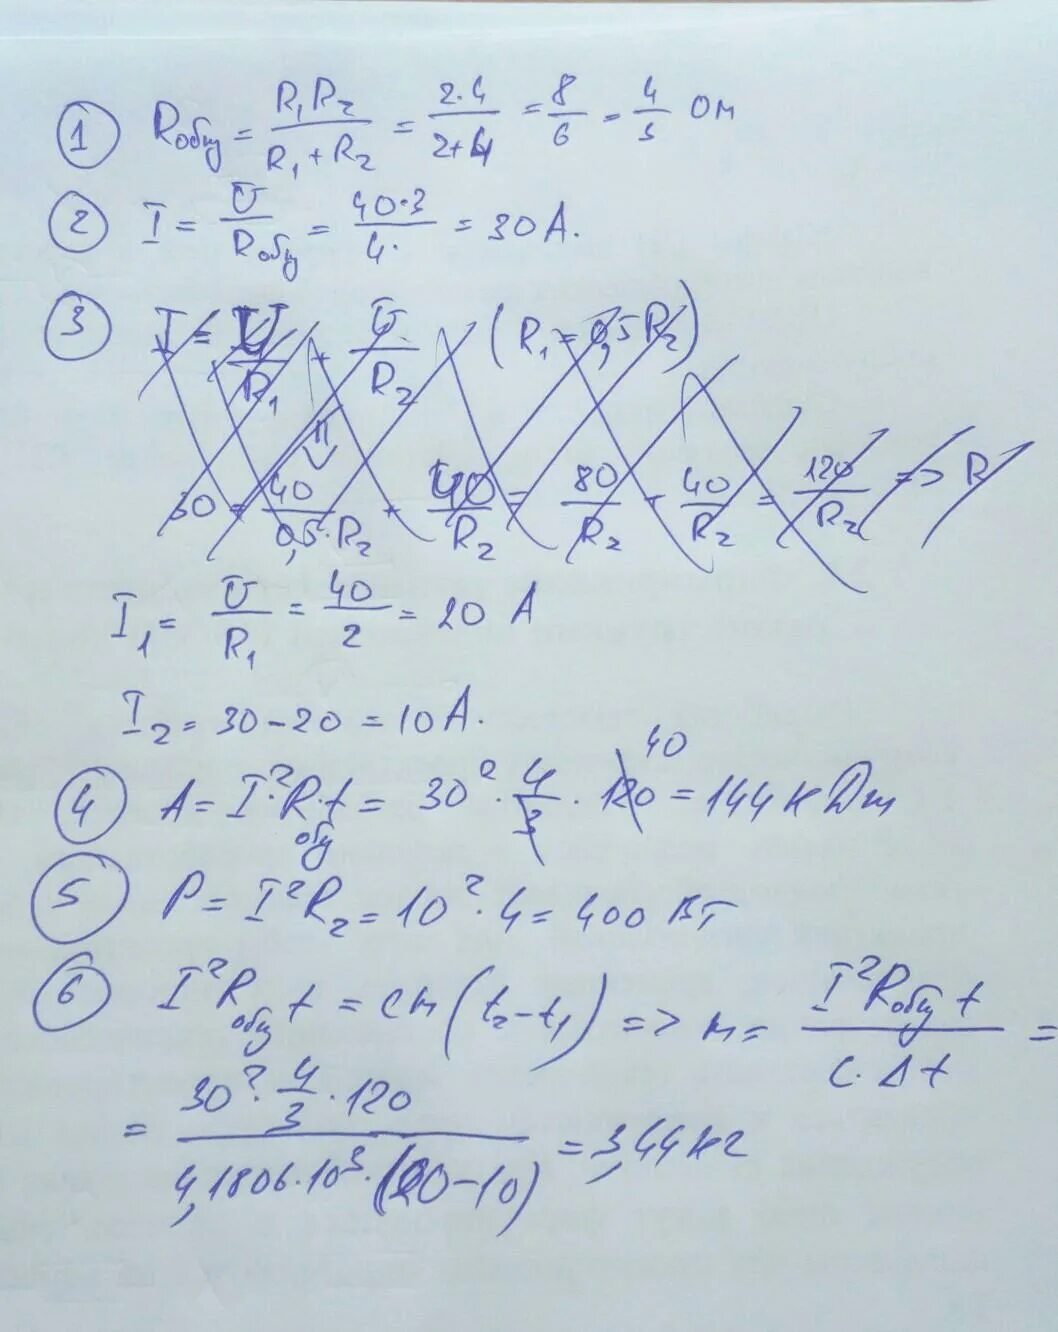 1 Rобщ = R₁R₂ / (R₁ + R₂) = 2·4 / (2+4) = 8/6 = 4/3 Ом
2 I = U / Rобщ = 40·3 / 4· = 30 А.
3 I = U/R₁ + U/R₂ (R₁ = 0,5 R₂)
30 = 40 / (0,5·R₂) + 40/R₂ = 80/R₂ + 40/R₂ = 120/R₂ => R
I₁ = U/R₁ = 40/2 = 20 А
I₂ = 30 - 20 = 10 А.
40
4 A = I²·Rобщ·t = 30² · 4/3 · 120 = 144 кДж
5 P = I²R₂ = 10² · 4 = 400 Вт
6 I²Rобщ t = cm(t₂ - t₁) => m = I²Rобщ t / (c·Δt) =
= 30² · 4/3 · 120 / (4,1806·10³·(20-10)) = 3,44 кг